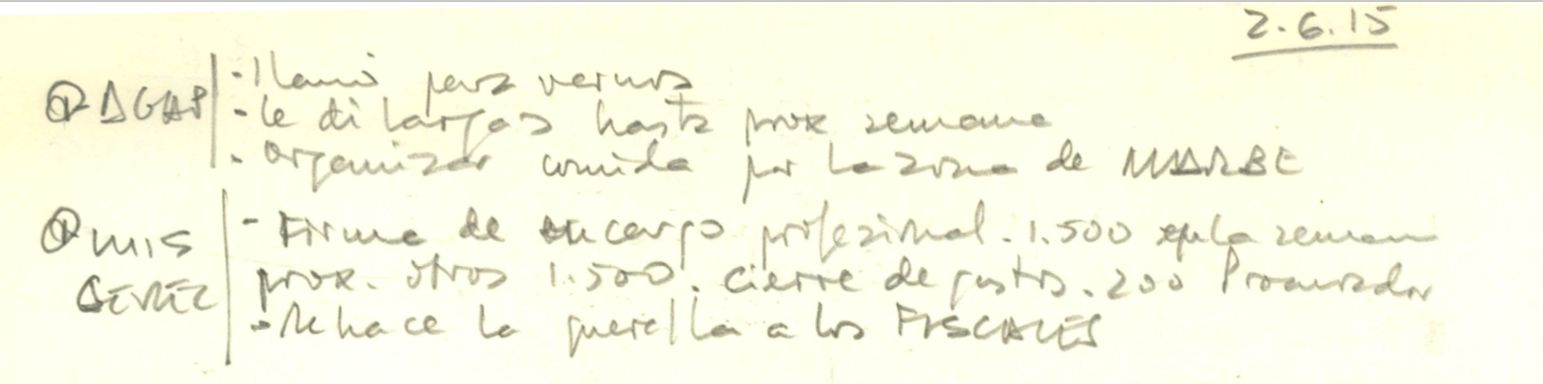 2.6.15
- llamó para vernos
- le di largas hasta prox semana
- organizar comida por la zona de MARBE
- Firma de encargo profesional. 1.500 la semana
prox. otros 1.500. cierre de gastos. 200 Procurador
- Rehace la querella a los FISCALES